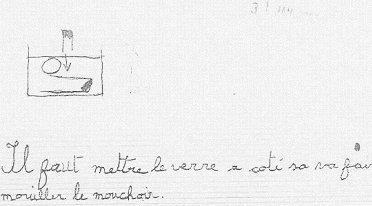 Il faut mettre le verre a coté sa va fair
mouiller le mouchoir.